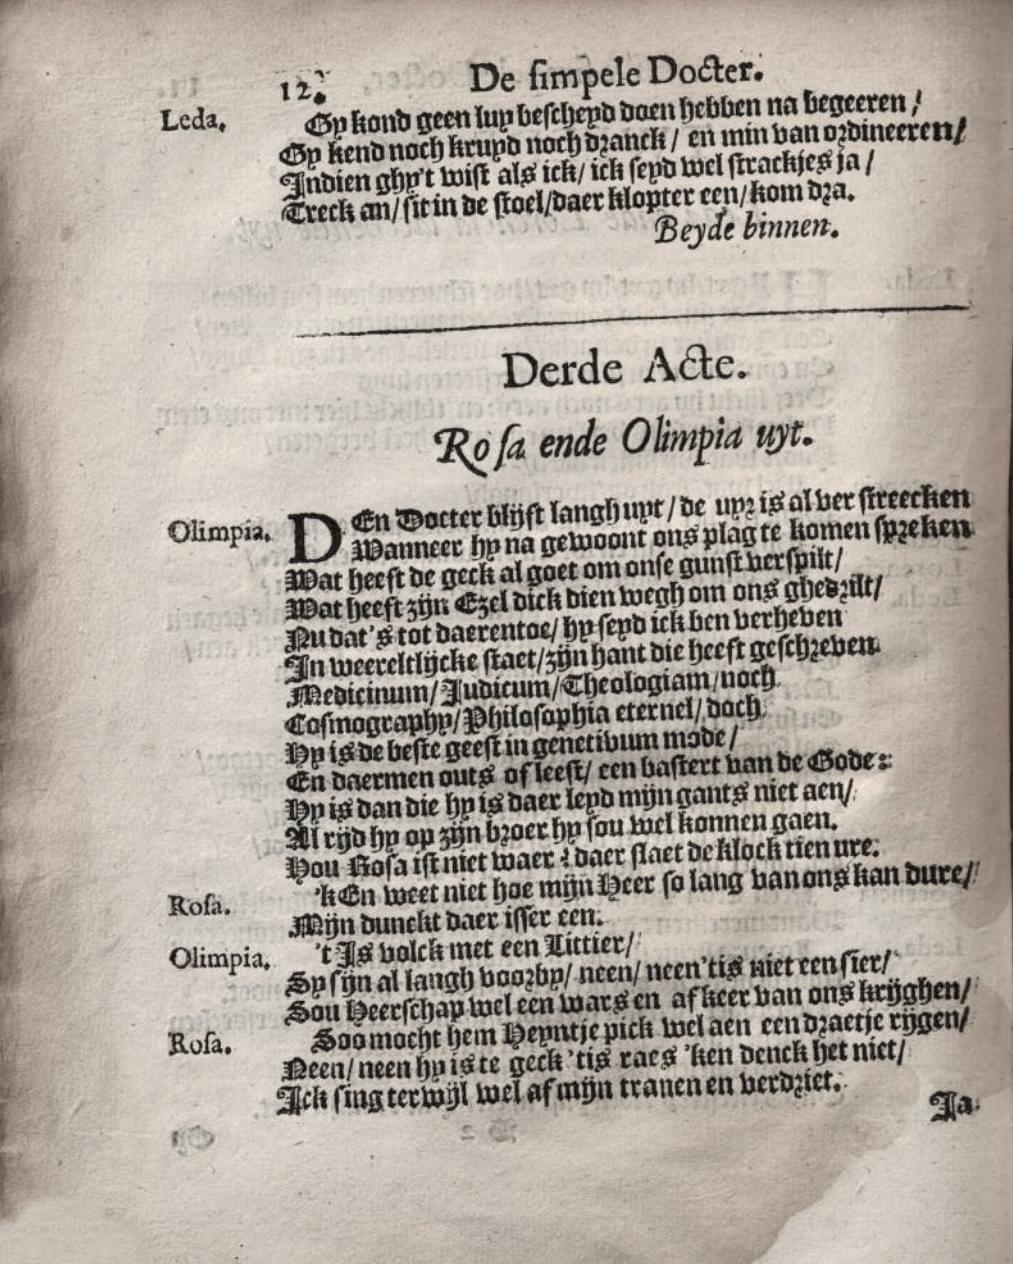 12. De simpele Docter.
Leda. Gy kond geen luy bescheyd doen hebben na begeeren /
Gy kend noch kruyd noch dranck / en min van ordineeren /
Indien ghy't wist als ick / ick seyd wel strackjes ja /
Treck an / sit in de stoel / daer klopter een / kom dra.
Beyde binnen.
Derde Acte.
Rosa ende Olimpia uyt.
Olimpia. DEn Docter blijft langh uyt / de uyr is al verstreecken
Wanneer hy na gewoont ons plag te komen spreken
Wat heeft de geck al goet om onse gunst verspilt /
Wat heeft zijn Ezel dick dien wegh om ons ghedrilt /
Nu dat's tot daerentoe / hy seyd ick ben verheven
In weereltlijcke staet / zijn hant die heeft geschreven
Medicinum / Judicum / Theologiam / noch
Cosmography / Philosophia eternel / doch
Hy is de beste geest in genetivum mode /
En daermen outs of leest / een bastert van de Gode:
Hy is dan die hy is daer leyd mijn gants niet aen /
Al rijd hy op zijn broer hy sou wel konnen gaen.
Hou Rosa ist niet waer? daer slaet de klock tien ure.
Rosa. 'kEn weet niet hoe mijn Heer so lang van ons kan dure /
Mijn dunckt daer isser een.
Olimpia. 't Is volck met een Littier /
Sy sijn al langh voorby / neen / neen 'tis niet een sier /
Sou Heerschap wel een wars en afkeer van ons krijghen /
Rosa. Soo mocht hem Heyntje pick wel aen een draetje rijgen /
Neen / neen hy is te geck 'tis raes 'ken denck het niet /
Ick sing terwijl wel af mijn tranen en verdriet.
Ja